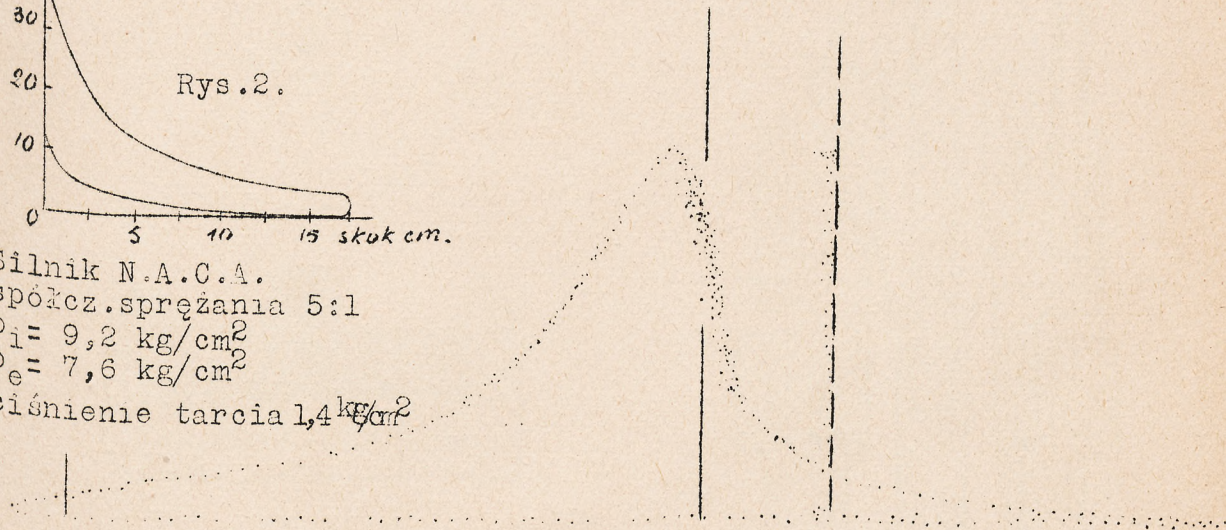 30
20
Rys.2.
10
0
5 10 15 skok cm.
Silnik N.A.C.A.
spółcz.sprężania 5:1
Pi= 9,2 kg/cm2
Pe= 7,6 kg/cm2
ciśnienie tarcia 1,4 kg/cm2